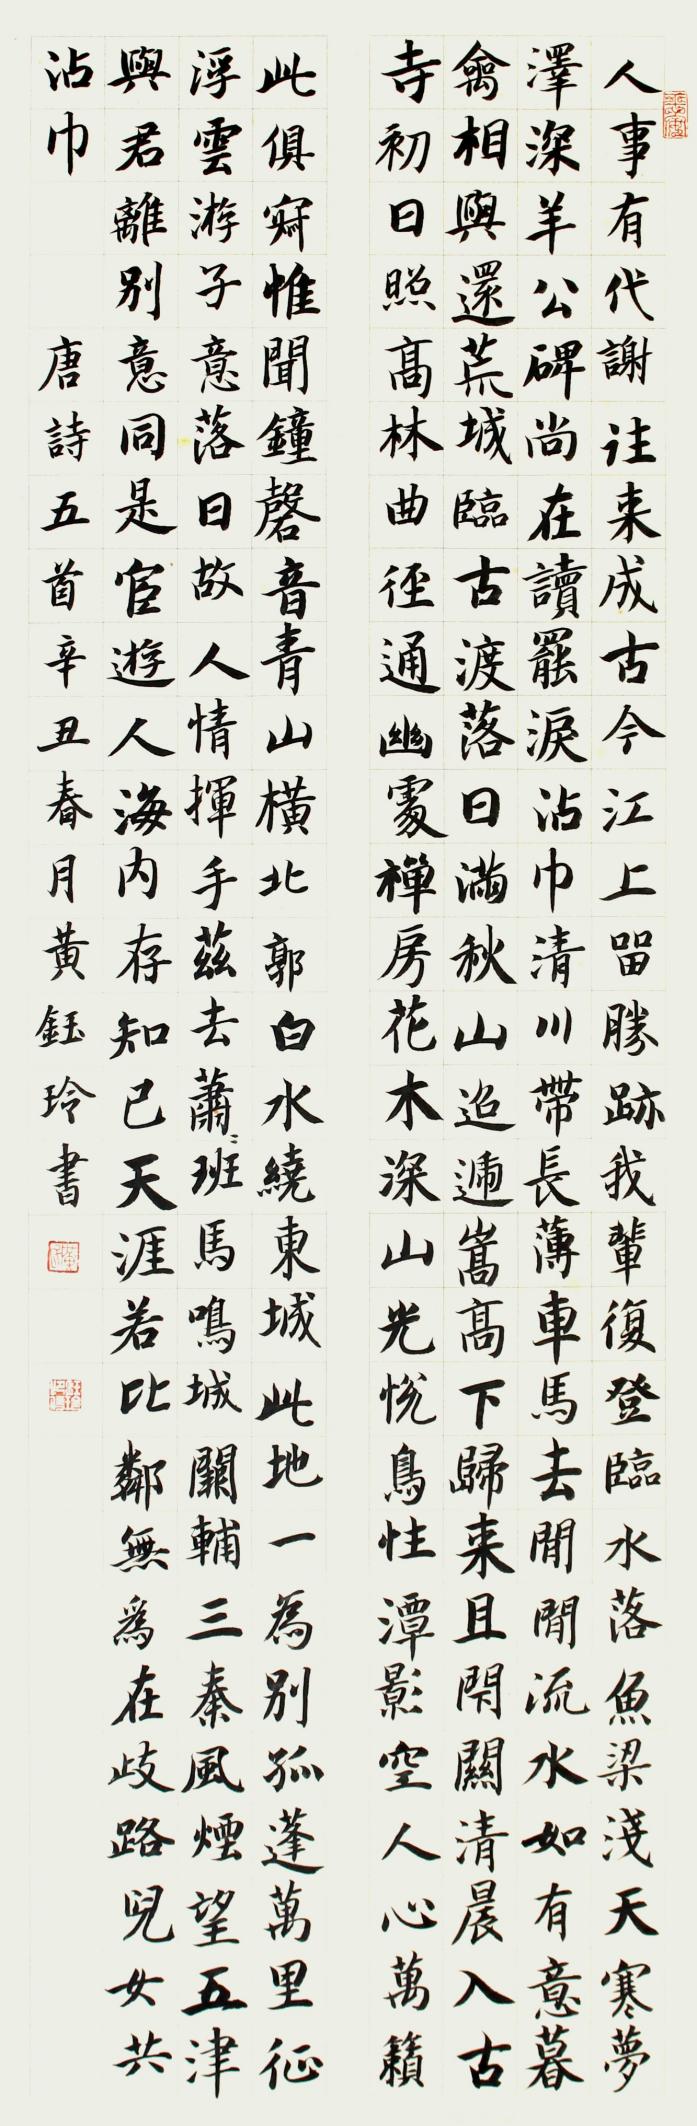 人事有代謝往来成古今江上留勝跡我輩復登臨水落魚梁淺天寒夢
澤深羊公碑尚在讀罷淚沾巾清川帶長薄車馬去閒閒流水如有意暮
禽相與還荒城臨古渡落日滿秋山迢遞嵩高下歸来且閇關清晨入古
寺初日照高林曲徑通幽處禪房花木深山光悅鳥性潭影空人心萬籟
此俱寂惟聞鐘磬音青山橫北郭白水繞東城此地一為別孤蓬萬里征
浮雲游子意落日故人情揮手茲去蕭〻班馬鳴城闕輔三秦風煙望五津
與君離別意同是宦遊人海內存知己天涯若比鄰無為在歧路兒女共
沾巾 唐詩五首辛丑春月黃鈺玲書